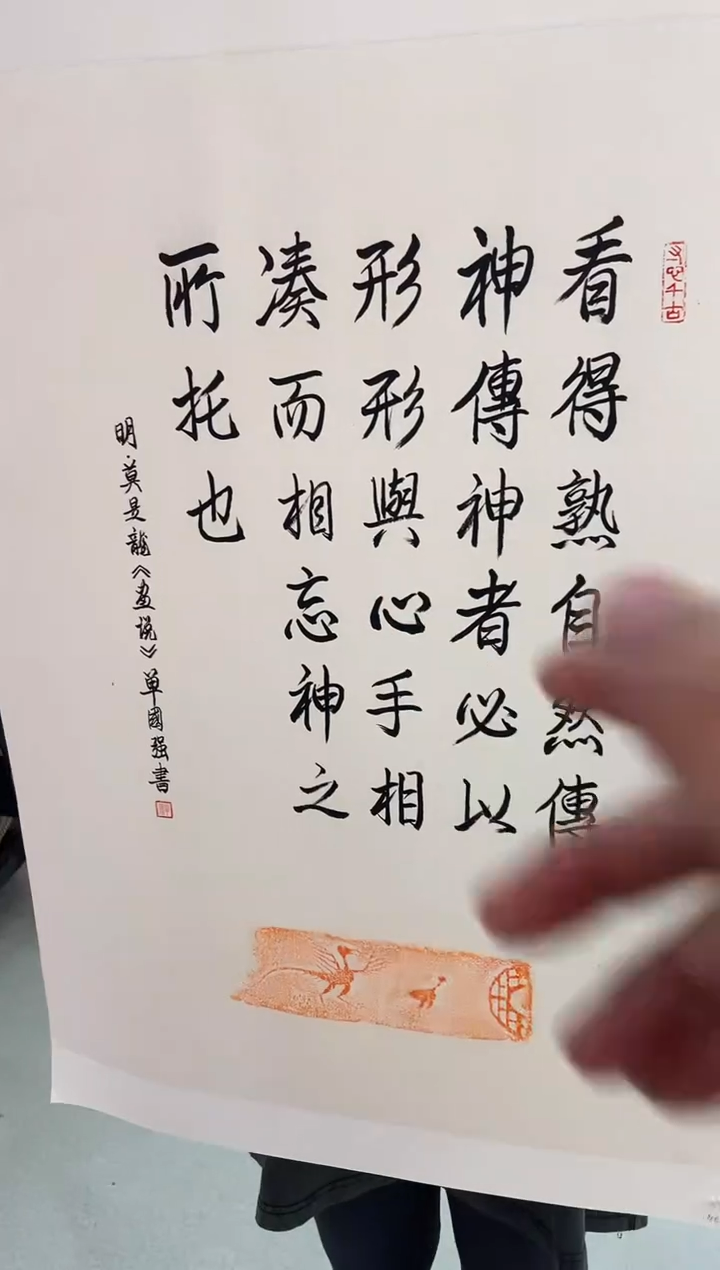 看得熟自然傳
神傳神者必以
形形與心手相
凑而相忘神之
所托也
明·莫是龍《畫説》單國强書